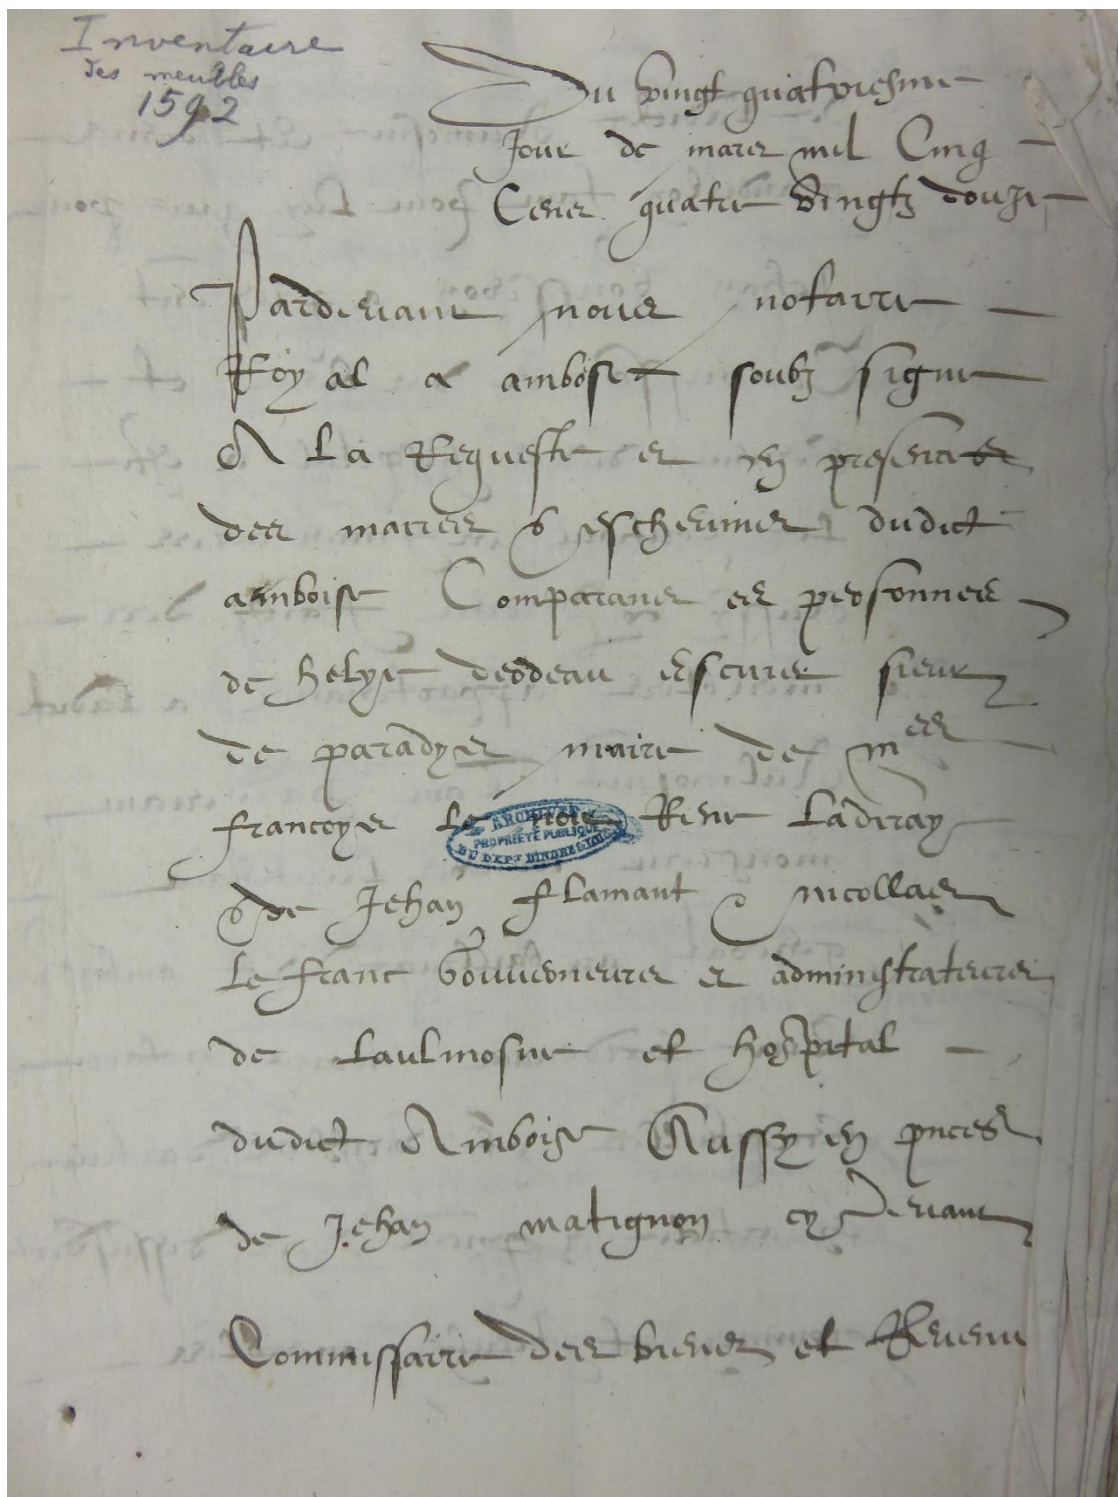 Inventaire
des meubles
1592
Du vingt quatriesme
Jour de mars mil Cinq
Cens quatre vingtz douze
Pardevant nous notaire
Royal a amboise soubz signe
A La Requeste et en presence
des maires & eschevins dudict
amboise Comparans es personnes
de helye deodeau escuier sieur
de paradys maire de mes
francoys Le noir Rene Ladiray
& de Jehan flamant & nicollas
Le franc Gouverneurs et administrateurs
de Laulmosne et hospital
dudict Amboise Aussy en pnces
de Jehan matignon cy devant
Commissaire des biens et Revenu
ARCHIVES
PROPRIÉTÉ PUBLIQUE
DU DEPT D'INDRE & LOIRE